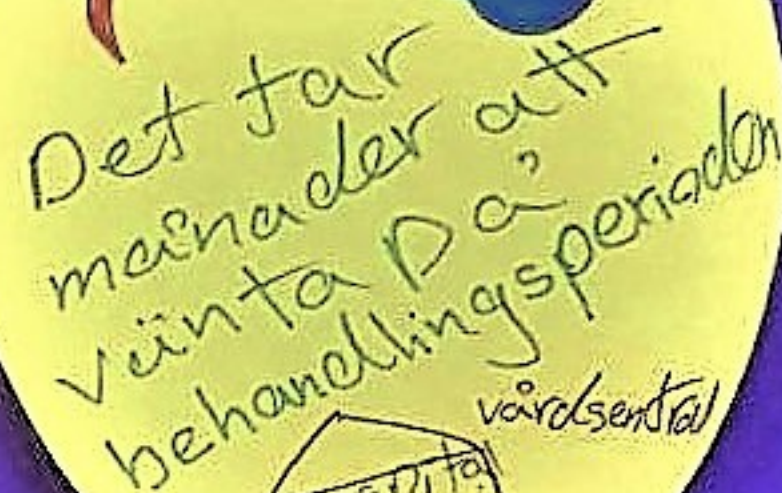 Det tar
månader att
vänta Då
behandlingsperioden
vårdsentral